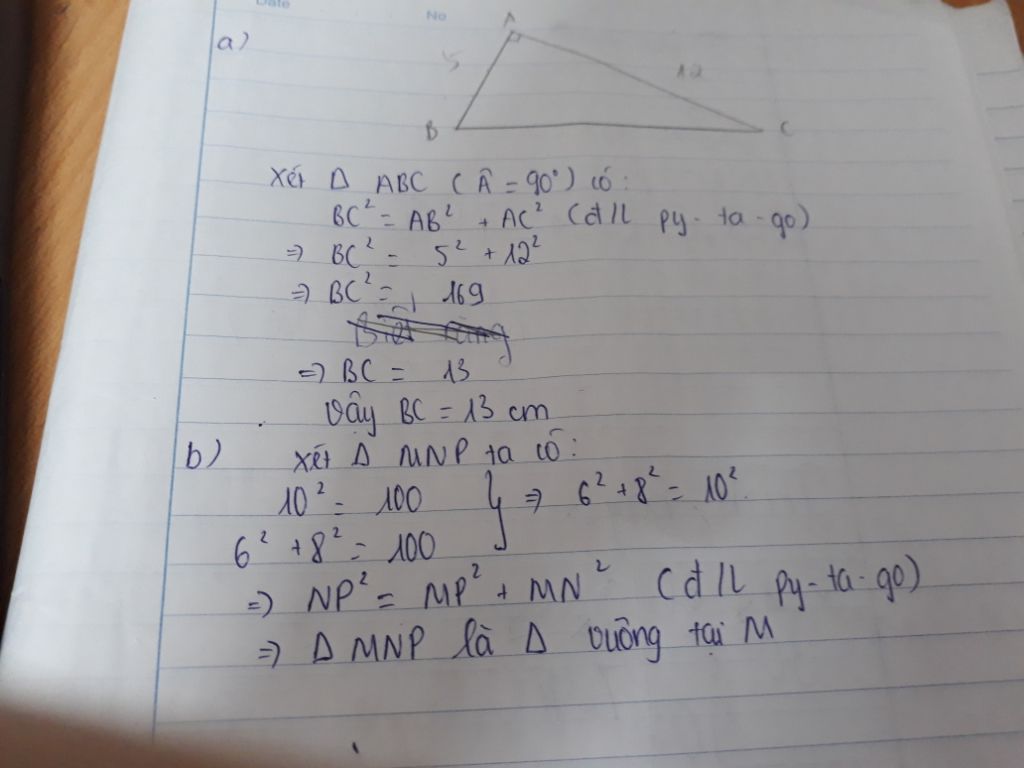 Date No
a)
A
5 12
B C
Xét Δ ABC ( Â = 90°) có:
BC² = AB² + AC² (đ/l py-ta-go)
=> BC² = 5² + 12²
=> BC² = 169
=> BC = 13
Vậy BC = 13 cm
b) Xét Δ MNP ta có:
10² = 100 } => 6² + 8² = 10².
6² + 8² = 100
=> NP² = MP² + MN² (đ/l py-ta-go)
=> Δ MNP là Δ vuông tại M